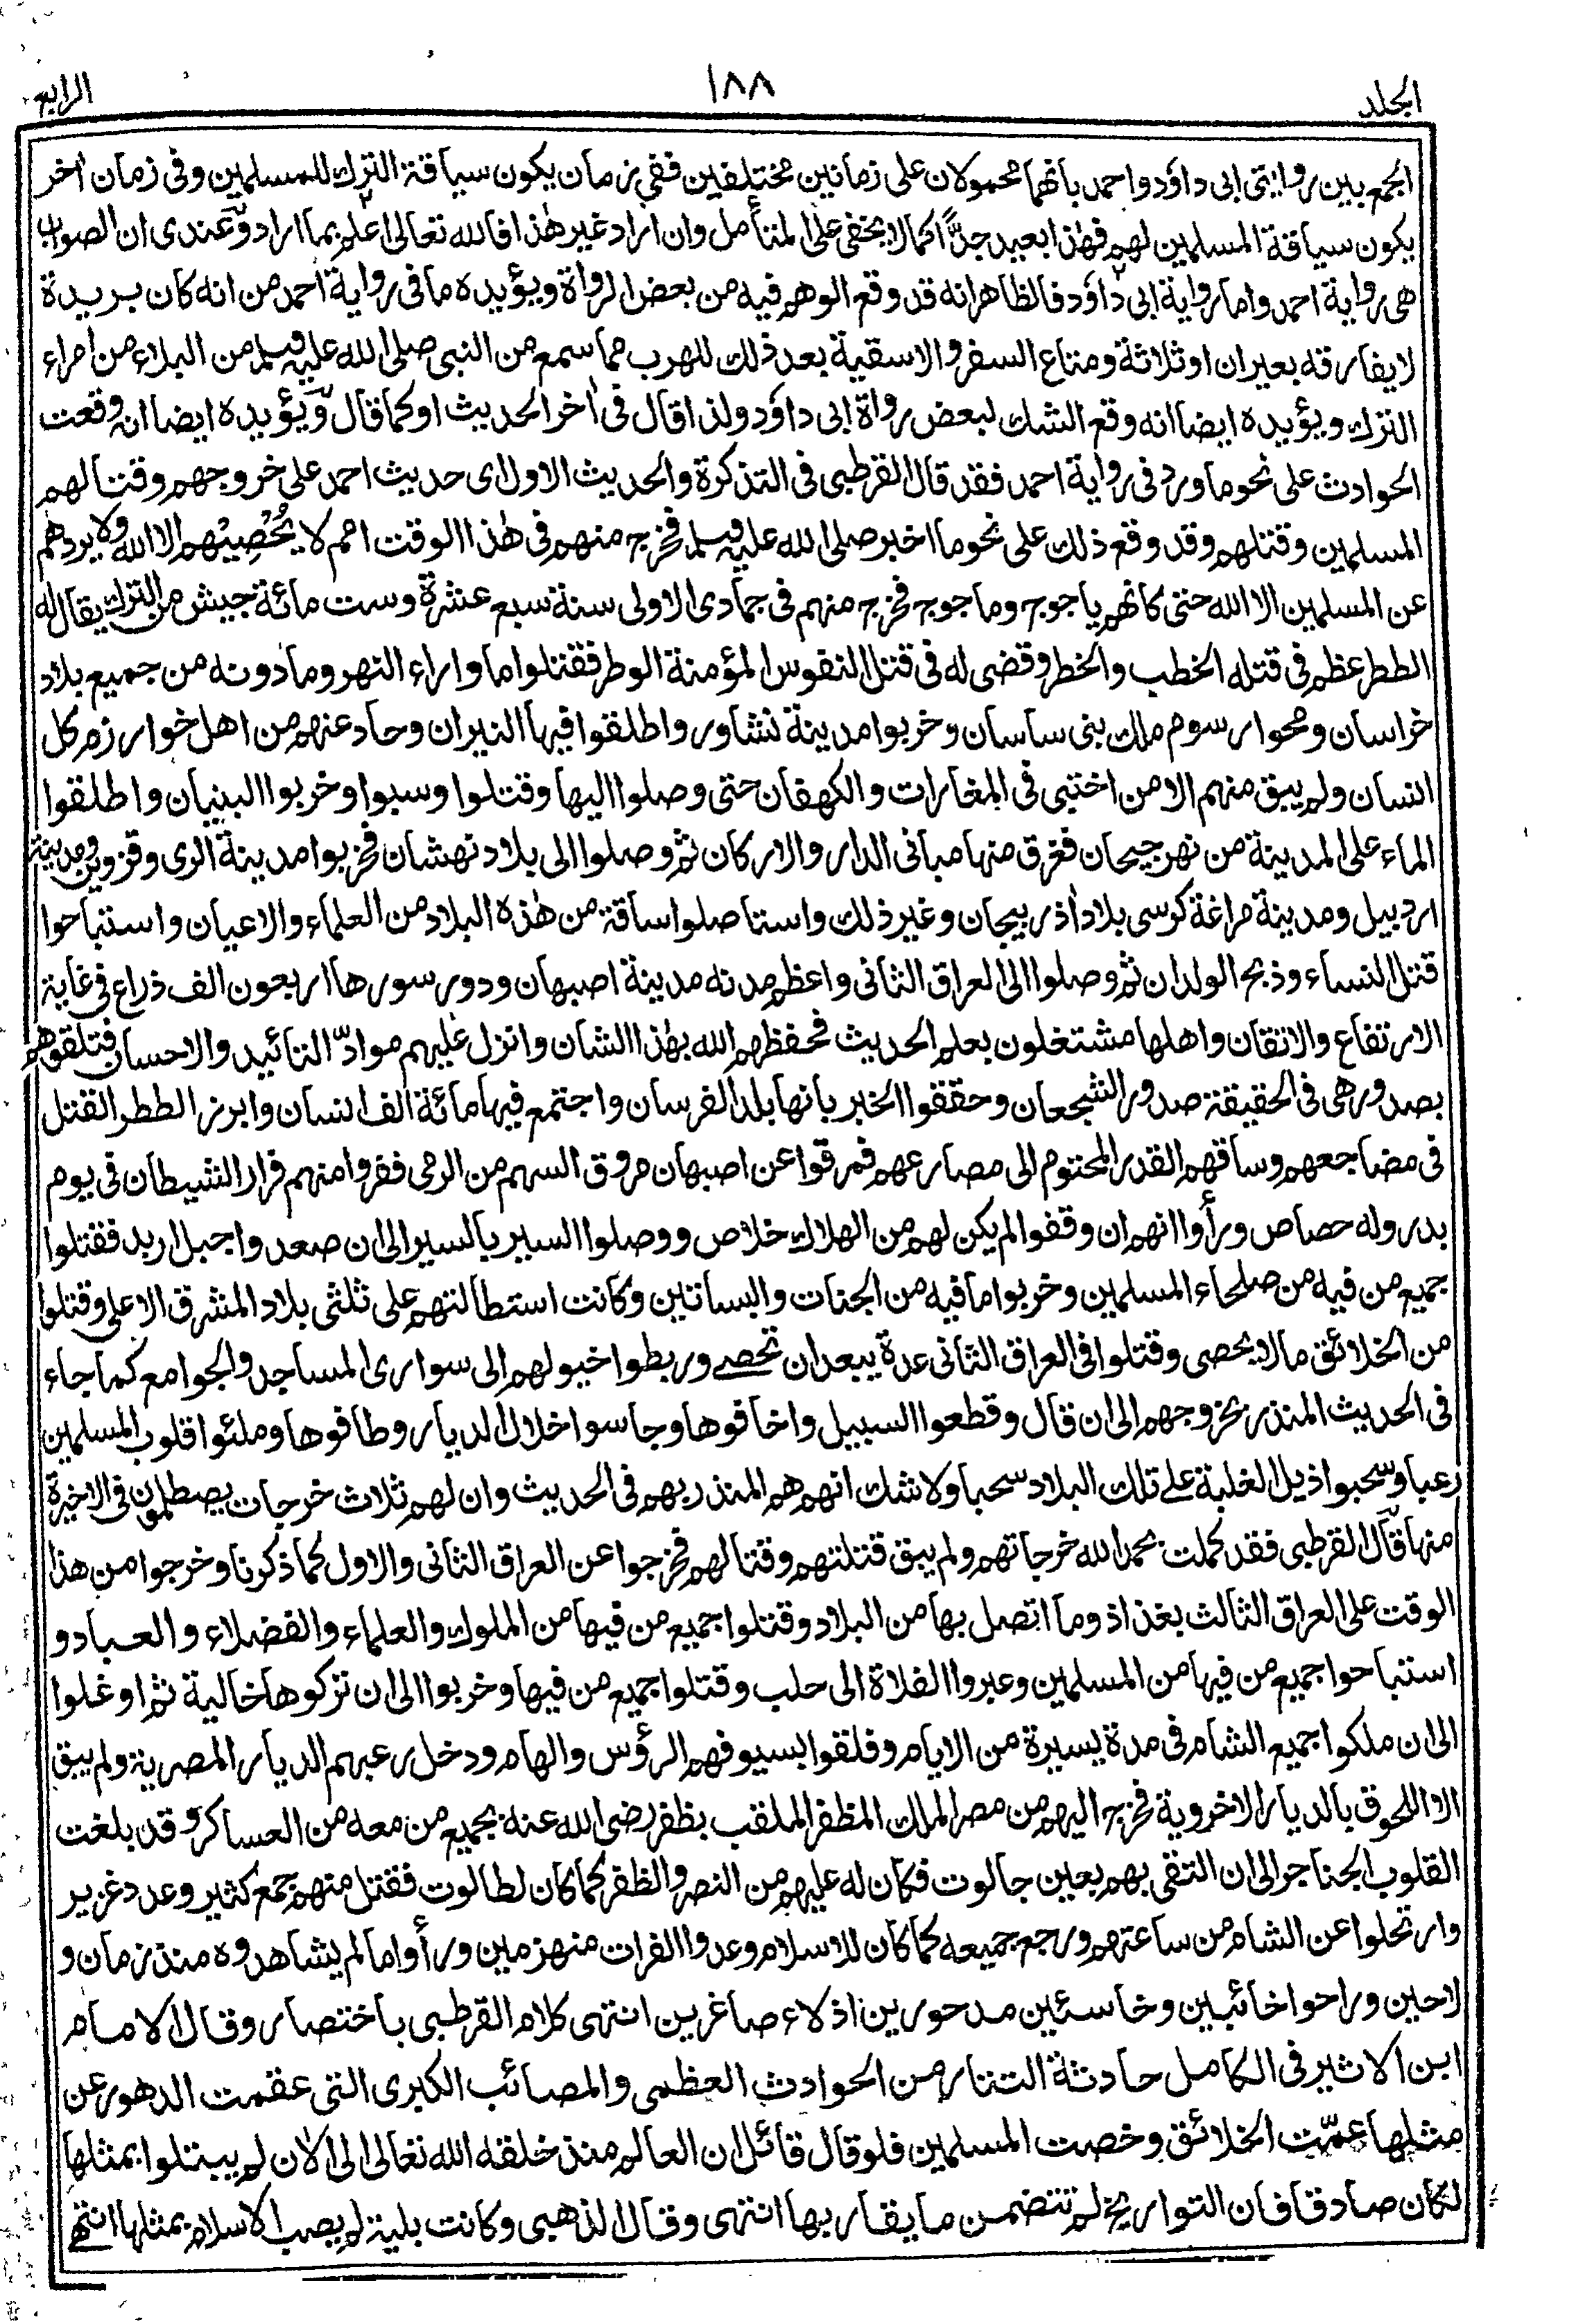 الجلد ١٨٨ الرابع
الجمع بين روايتى ابى داؤد واحمد بانهما محمولان على زمانين مختلفين ففي زمان يكون سياقة الترك للمسلمين وفى زمان اٰخر
يكون سياقة المسلمين لهم فهٰذا بعيد جدًّا كمالا يخفى على المتأمل وان اراد غير هٰذا فالله تعالى اعلم بما اراد وعندى ان الصواب
هى رواية احمد واما رواية ابى داؤد فالظاهر انه قد وقع الوهم فيه من بعض الرواة ويؤيده ما فى رواية احمد من انه كان بريدة
لا يفارقه بعيران او ثلاثة ومتاع السفر والاسقية بعد ذلك للهرب مما سمع من النبى صلى الله عليه وسلم من البلاء من امراء
الترك ويؤيده ايضا انه وقع الشك لبعض رواة ابى داؤد ولذا قال فى اٰخر الحديث اوكما قال ويؤيده ايضا انه وقعت
الحوادث على نحو ما ورد فى رواية احمد فقد قال القرطبى فى التذكرة والحديث الاول اى حديث احمد على خروجهم وقتالهم
المسلمين وقتلهم وقد وقع ذلك على نحو ما اخبر صلى الله عليه وسلم فخرج منهم فى هٰذا الوقت امم لا يُحْصِيْهم الا الله ولا يردهم
عن المسلمين الا الله حتى كانهم ياجوج وماجوج فخرج منهم فى جمادى الاولى سنة سبع عشرة وست مائة جيش من الترك يقال له
الططر عظم فى قتله الخطب والخطر وقضى له فى قتل النفوس المؤمنة الوطر فقتلوا ما وراء النهر وما دونه من جميع بلاد
خراسان ومحوا رسوم ملك بنى ساسان وخربوا مدينة نشاور واطلقوا فيها النيران وحاد عنهم من اهل خوارزم كل
انسان ولم يبق منهم الا من اختبى فى المغارات والكهفان حتى وصلوا اليها وقتلوا وسبوا وخربوا البنيان واطلقوا
الماء على المدينة من نهر جيحان فغرق منها مبانى الدار والاركان ثم وصلوا الى بلاد نهشان فخربوا مدينة الرى وقزوين ومدينة
اردبيل ومدينة مراغة كرسى بلاد اٰذربيجان وغير ذلك واستاصلوا ساقة من هٰذه البلاد من العلماء والاعيان واستباحوا
قتل النساء وذبح الولدان ثم وصلوا الى العراق الثانى واعظم مدنه مدينة اصبهان ودور سورها اربعون الف ذراع فى غاية
الارتفاع والاتقان واهلها مشتغلون بعلم الحديث فحفظهم الله بهٰذا الشان وانزل عليهم موادّ التائيد والاحسان فتلقوهم
بصدور هى فى الحقيقة صدور الشجعان وحققوا الخبر بانها بلد الفرسان واجتمع فيها مائة الف انسان وابرز الططر القتل
فى مضاجعهم وساقهم القدر المحتوم الى مصارعهم فمرقوا عن اصبهان مروق السهم من الرمى ففروا منهم فرار الشيطان فى يوم
بدر وله حصاص ورأوا انهم ان وقفوا لم يكن لهم من الهلاك خلاص ووصلوا السير بالسير الى ان صعدوا جبل اربد فقتلوا
جميع من فيه من صلحاء المسلمين وخربوا ما فيه من الجنات والبساتين وكانت استطالتهم على ثلثى بلاد المشرق الاعلى وقتلوا
من الخلائق مالا يحصى وقتلوا فى العراق الثانى عدة يبعد ان تحصى وربطوا خيولهم الى سوارى المساجد والجوامع كما جاء
فى الحديث المنذر بخروجهم الى ان قال وقطعوا السبيل واخافوها وجاسوا خلال الديار وطافوها وملئوا قلوب المسلمين
رعبا وسحبوا ذيل الغلبة على تلك البلاد سحبا ولا شك انهم هم المنذر بهم فى الحديث وان لهم ثلاث خرجات يصطلمون فى الاخيرة
منها قال القرطبى فقد كملت بحمد الله خرجاتهم ولم يبق قتلتهم وقتالهم فخرجوا عن العراق الثانى والاول كما ذكرنا وخرجوا من هذا
الوقت على العراق الثالث بغذاذ وما اتصل بها من البلاد وقتلوا جميع من فيها من الملوك والعلماء والفضلاء والعباد و
استباحوا جميع من فيها من المسلمين وعبروا الفلاة الى حلب وقتلوا جميع من فيها وخربوا الى ان تركوها خالية ثم اوغلوا
الى ان ملكوا جميع الشام فى مدة يسيرة من الايام وفلقوا بسيوفهم الرؤس والهام ودخل رعبهم الديار المصرية ولم يبق
الا اللحوق بالديار الاخروية فخرج اليهم من مصر الملك المظفر الملقب بظفر رضى الله عنه بجميع من معه من العساكر وقد بلغت
القلوب الحناجر الى ان التقى بهم بعين جالوت فكان له عليهم من النصر والظفر كما كان لطالوت فقتل منهم جمع كثير وعدد غزير
وارتحلوا عن الشام من ساعتهم ورجع جميعه كما كان للاسلام وعدوا الفرات منهزمين ورأوا ما لم يشاهدوه منذ زمان و
لاحين وراحوا خائبين وخاسئين مدحورين اذلاء صاغرين انتهى كلام القرطبى باختصار وقال الامام
ابن الاثير فى الكامل حادثة التتار من الحوادث العظمى والمصائب الكبرى التى عقمت الدهور عن
مثلها عمّت الخلائق وخصت المسلمين فلو قال قائل ان العالم منذ خلقه الله تعالى الى الاٰن لم يبتلوا بمثلها
لكان صادقا فان التواريخ لم تتضمن ما يقاربها انتهى وقال الذهبى وكانت بلية لم يصب الاسلام بمثلها انتهى